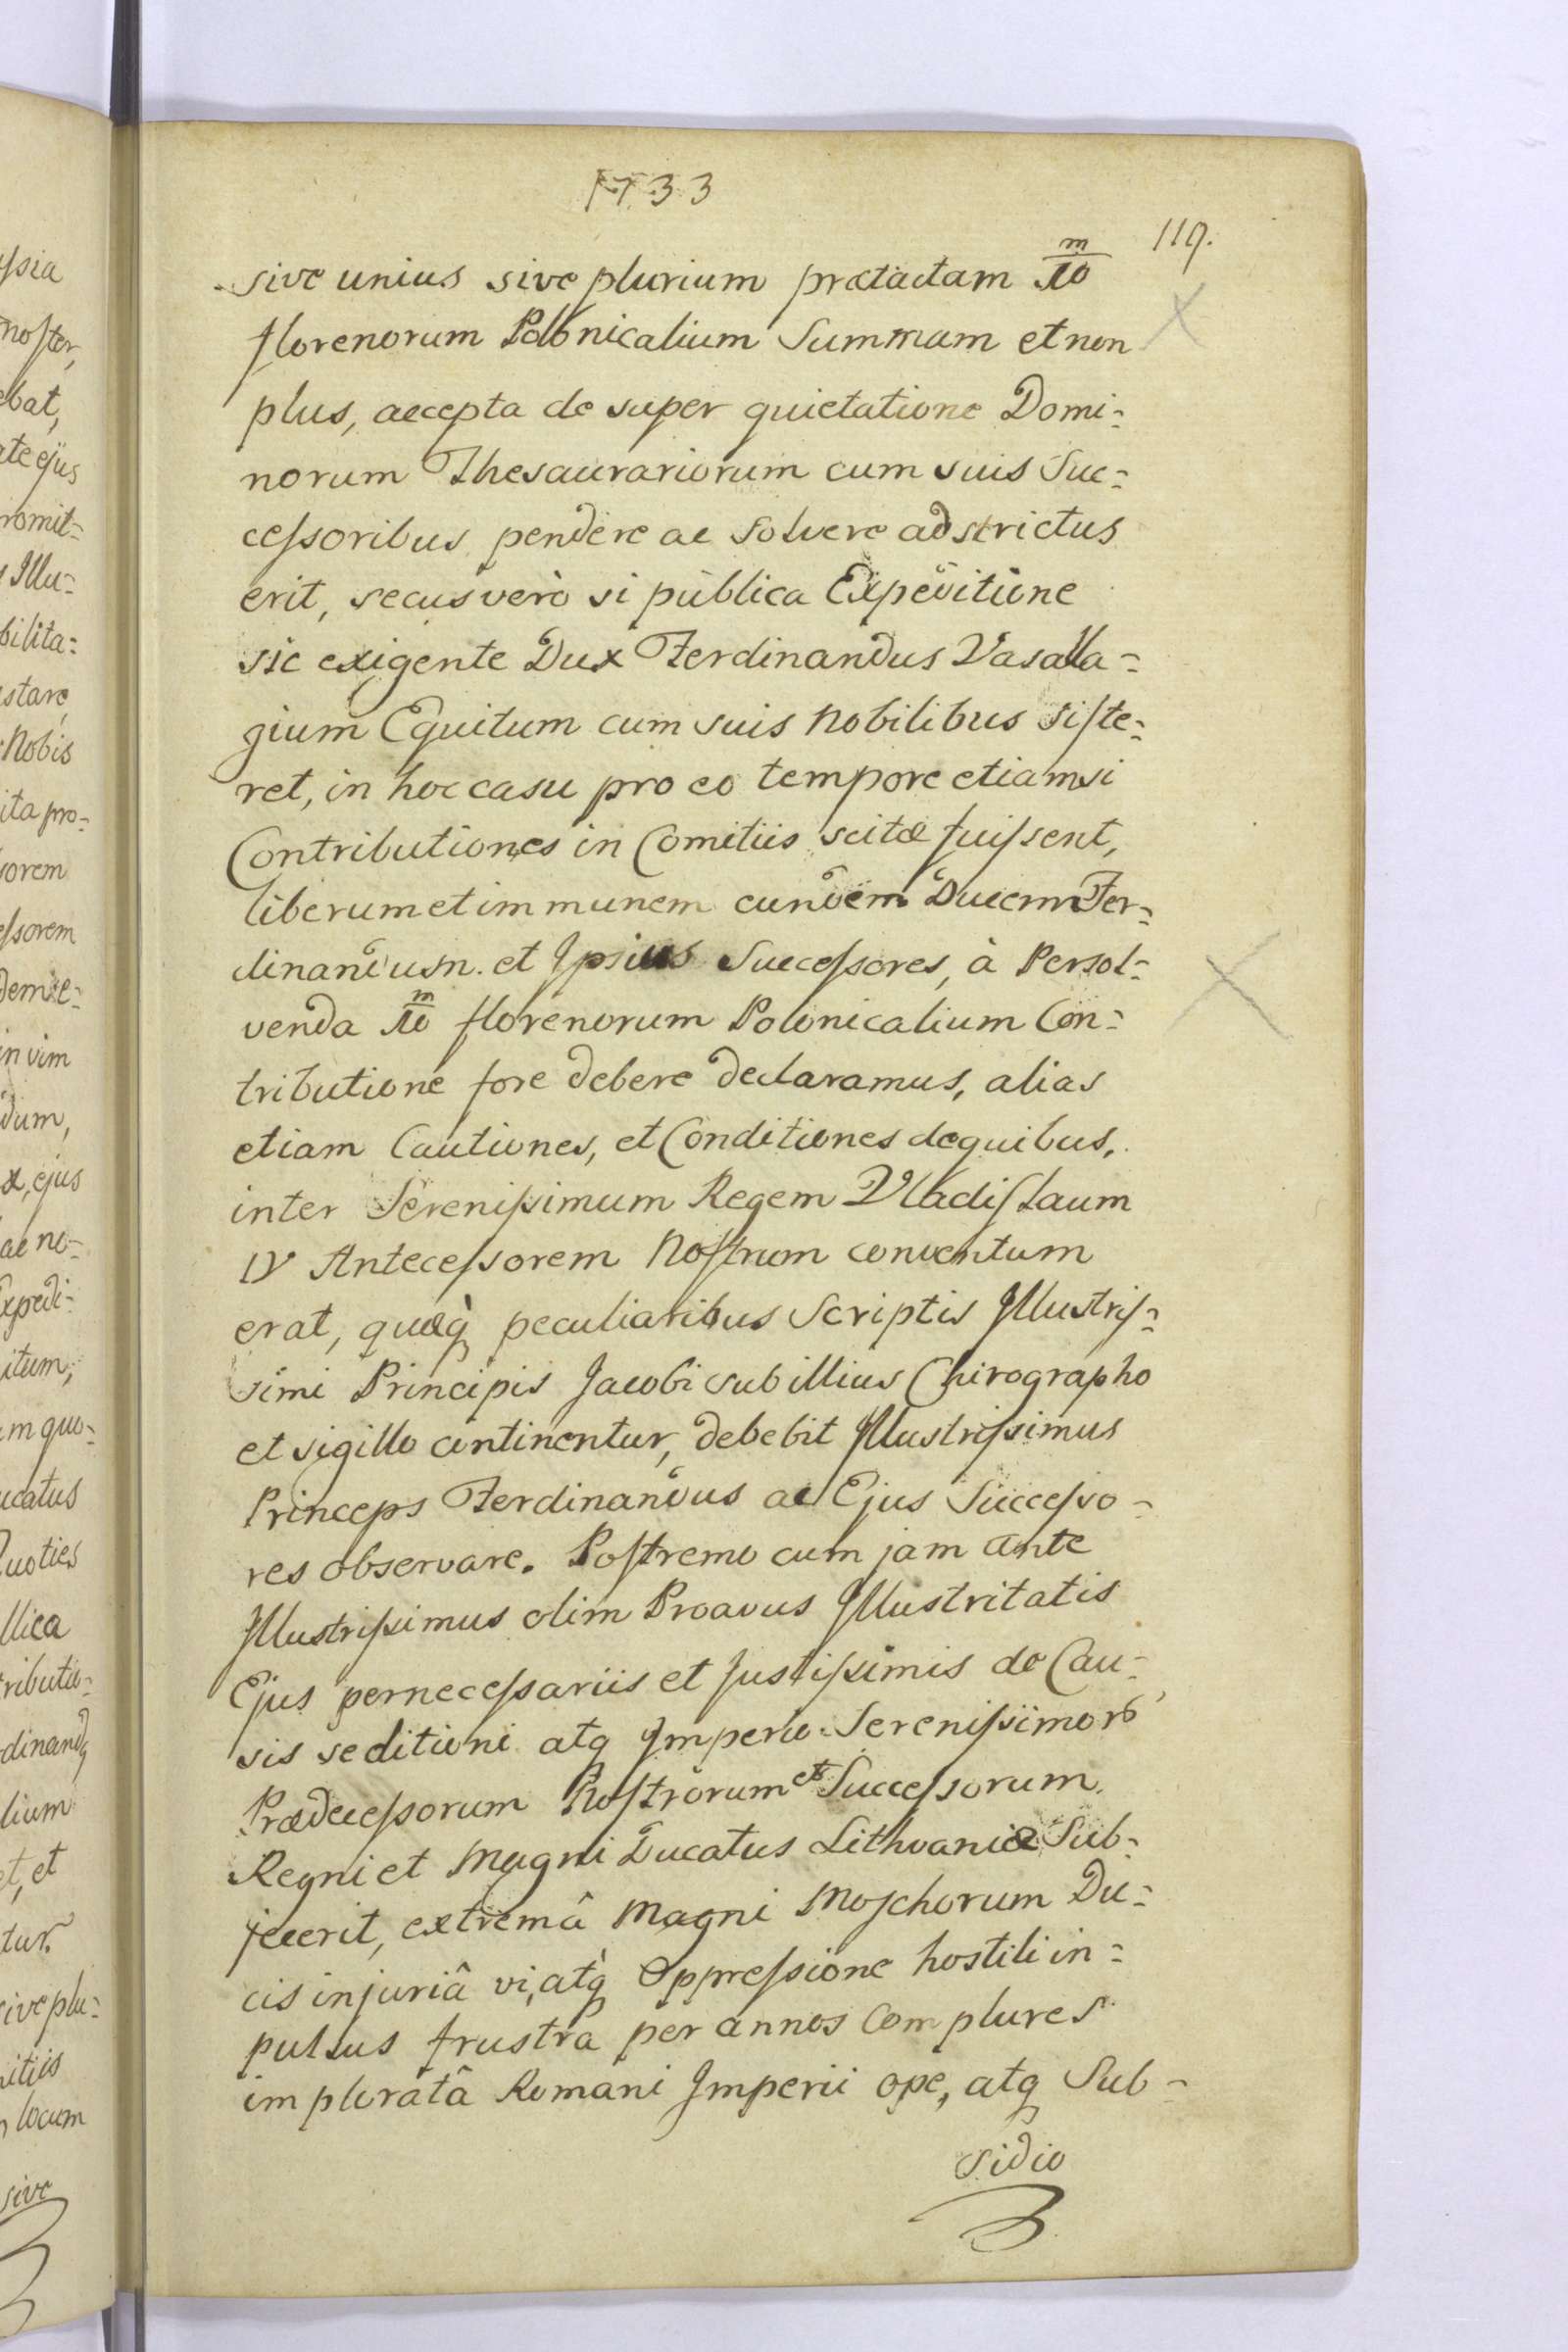 1733
119.
sive unius sive plurium prætactam 10 m
florenorum Polonicalium Summam et non
plus, accepta de super quietatione Domi=
norum Thesaurariorum cum suis Suc=
cessoribus pendere ac solvere adstrictus
erit, secus verò si publica Expeditione
sic exigente Dux Ferdinandus Vasalla=
gium Equitum cum suis Nobilibus siste=
ret, in hoc casu pro eo tempore etiamsi
Contributiones in Comitiis scitæ fuissent,
liberum et immunem eundem Ducem Fer=
dinandum. et Ipsius Successores, à Persol=
venda 10 m florenorum Polonicalium Con=
tributione fore debere declaramus, alias
etiam Cautiones, et Conditiones de quibus,
inter Serenissimum Regem Vladislaum
IV Antecessorem Nostrum conventum
erat, quæq̀ peculiaribus Scriptis Illustris=
simi Principis Jacobi sub illius Chirographo
et sigillo continentur, debebit Illustrissimus
Princeps Ferdinandus ac Ejus Successo=
res observare. Postremo cum jam ante
Illustrissimus olim Proavus Illustritatis
Ejus pernecessariis et justissimis de Cau=
sis seditioni atq Imperio Serenissimor
Prædecessorum Nostrorum et Successorum
Regni et Magni Ducatus Lithvaniæ Sub=
jecerit, extremâ Magni Moschorum Du=
cis injuriâ vi, atq̀ Oppressione hostili in=
pulsus frustra per annos Complures
imploratâ Romani Imperii ope, atq Sub=
sidio
ssia
noster,
ebat,
ate ejus
romit=
Illu=
bilita=
stare
Nobis
ita pro=
sorem
essorem
dem
in vim
dum,
ejus
ac no=
Expedi=
itum,
m quo=
ucatus
Quoties
llica
tributio=
dinand
lium
et, et
tur.
sive plu=
mitiis
locum
sive